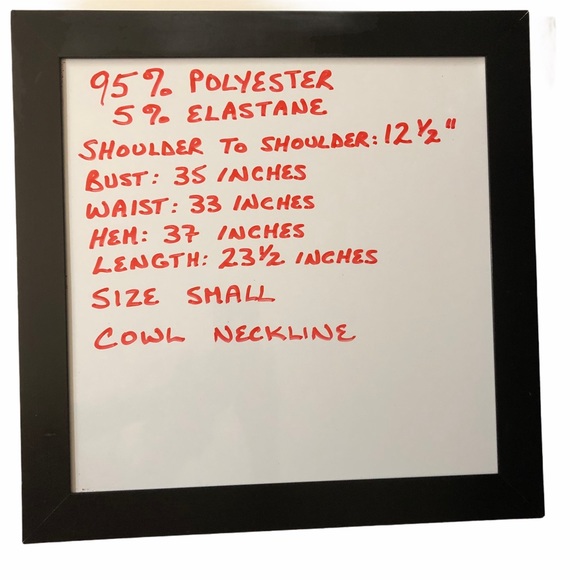 95% POLYESTER
5% ELASTANE
SHOULDER TO SHOULDER: 12 1/2"
BUST: 35 INCHES
WAIST: 33 INCHES
HEM: 37 INCHES
LENGTH: 23 1/2 INCHES
SIZE SMALL
COWL NECKLINE